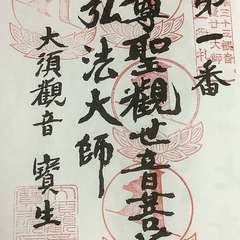 第一番
尊聖觀世音菩
弘法大師
大須觀音 寶生